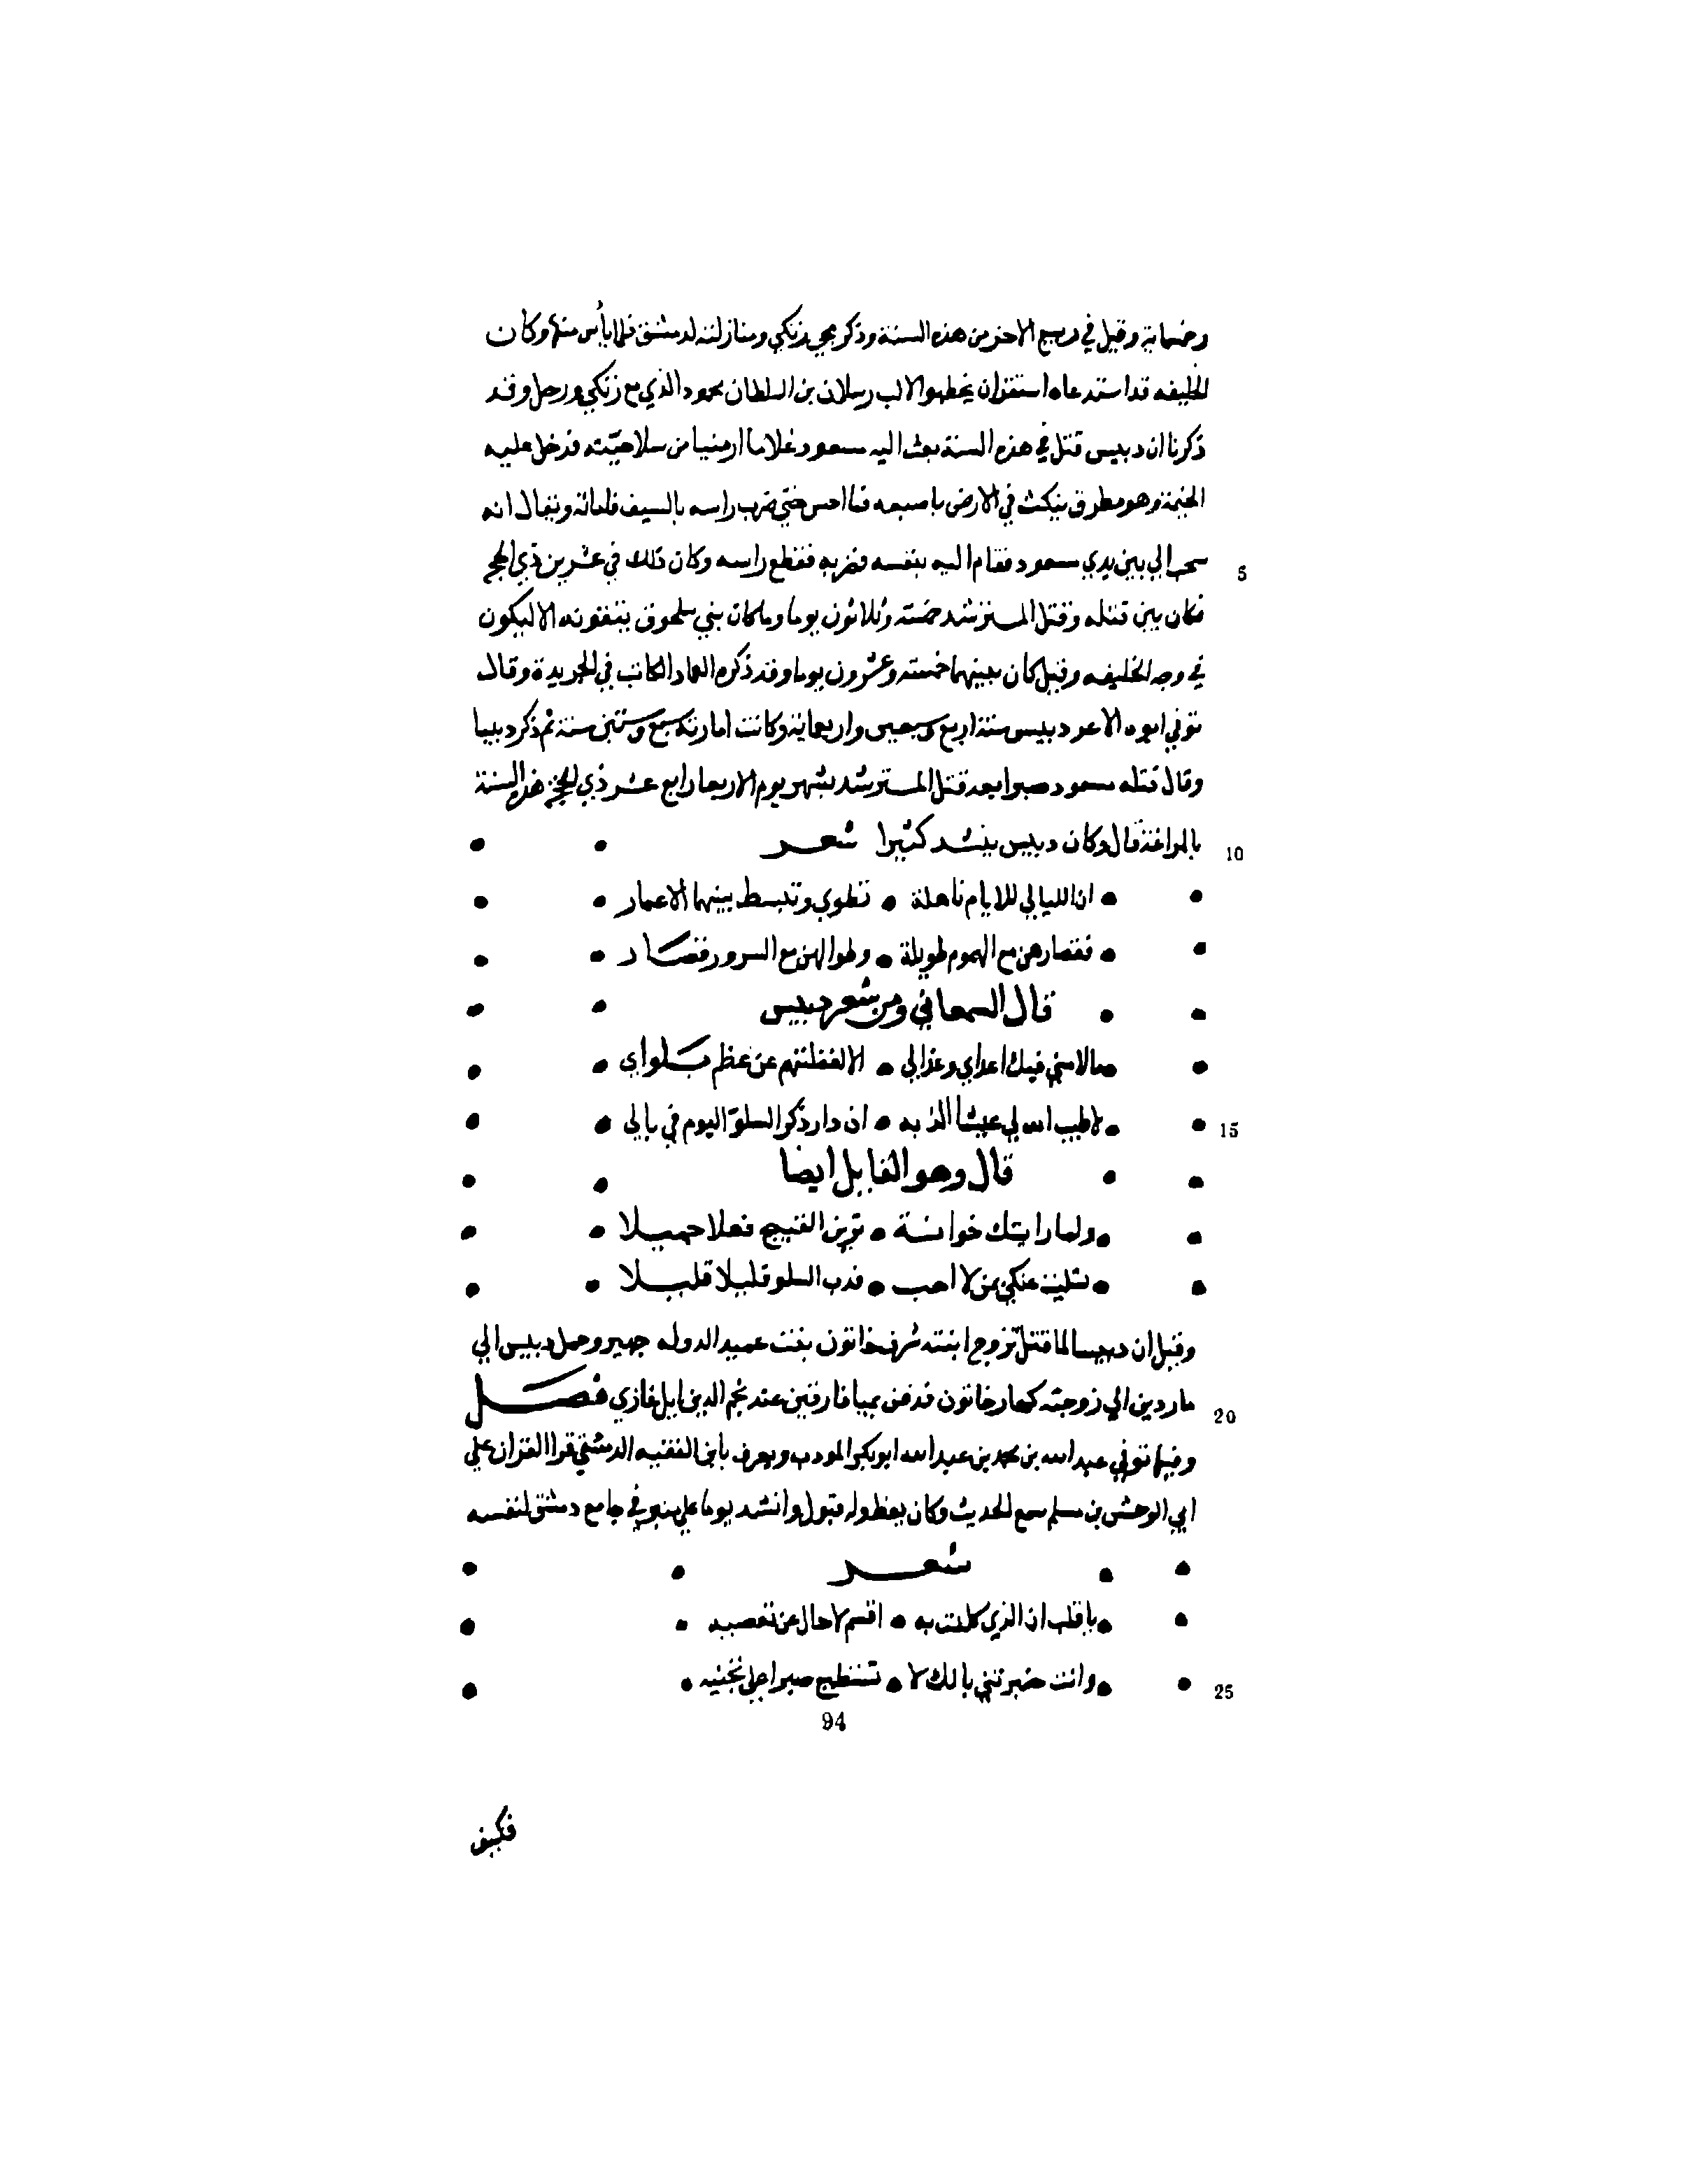 وخمسماية وقيل في ربيع الاخر من هذه السنة وذكر مجي زنكي ومنازلته لدمشق فلما يأس منها وكان
الخليفه قد استدعاه استقر ان يخطبوا لالب رسلان بن السلطان محمود الذي مع زنكي ورحل وقد
ذكرنا ان دبيس قتل في هذه السنة بعث اليه مسعود غلاما ارمنيا من سلاحيّته فدخل عليه
الخيمة وهو مطرق ينكث في الارض باصبعه فما احس حتي ضرب راسه بالسيف فابانه ويقال انه
5 سحب الي بين يدي مسعود فقام اليه بنفسه وضربه فقطع راسه وكان ذلك في عشرين ذي الحج
فكان بين قتله وقتل المسترشد خمسة وثلاثون يوما وما كان بني سلجوق يبقونه الا ليكون
في وجه الخليفه وقيل كان بينهما خمسة وعشرون يوما وقد ذكره العماد الكاتب في الخريدة وقال
توفي ابوه الاعو دبيس سنة اربع وسبعين واربعماية وكانت امارته سبع وستين سنة ثم ذكر دبيسا
وقال قتله مسعود صبرا بعد قتل المسترشد بشهر يوم الاربعا رابع عشر ذي الحجة هذه السنة
10 بالمراغة قال وكان دبيس ينشد كثيرا شعر
ان الليالي للايام ناهلة • تطوي وتبسط بينها الاعمار
فقصارهن مع الهموم طويلة • وطوالهن مع السرور فقصار
قال السمعاني ومن شعر دبيس
ما لامني فيك اعداي وعذالي • الا لغفلتهم عن عظم بلواي
15 لا طيب الله لي عيشا الذ به • ان دار ذكر السلوّ اليوم في بالي
قال وهو القايل ايضا
ولما رايتك خوانة • ترين القبيح فعلا جميلا
تسليت عنك بمن لا احب • فدب السلو قليلا قليلا
وقيل ان دبيسا لما قتل تزوج ابنته شرف خاتون بنت عميد الدوله جهير وحمل دبيس الي
20 ماردين الي زوجته كهار خاتون فدفن بميافارقين عند نجم الدين ايل غازي فصل
وفيها توفي عبد الله بن محمد بن عبد الله ابو بكر المودب ويعرف بابن الفقيه الدمشقي قرا القران علي
ابي الوحش بن مسلم سمع الحديث وكان يعظ وله قبول وانشد يوما علي منبر في جامع دمشق لنفسه
شعر
يا قلب ان الذي كلفت به • اقسم لا حال عن تعصبه
25 وانت خبرتني بانك لا • تستطيع صبرا علي تجنيه
94
فكيف